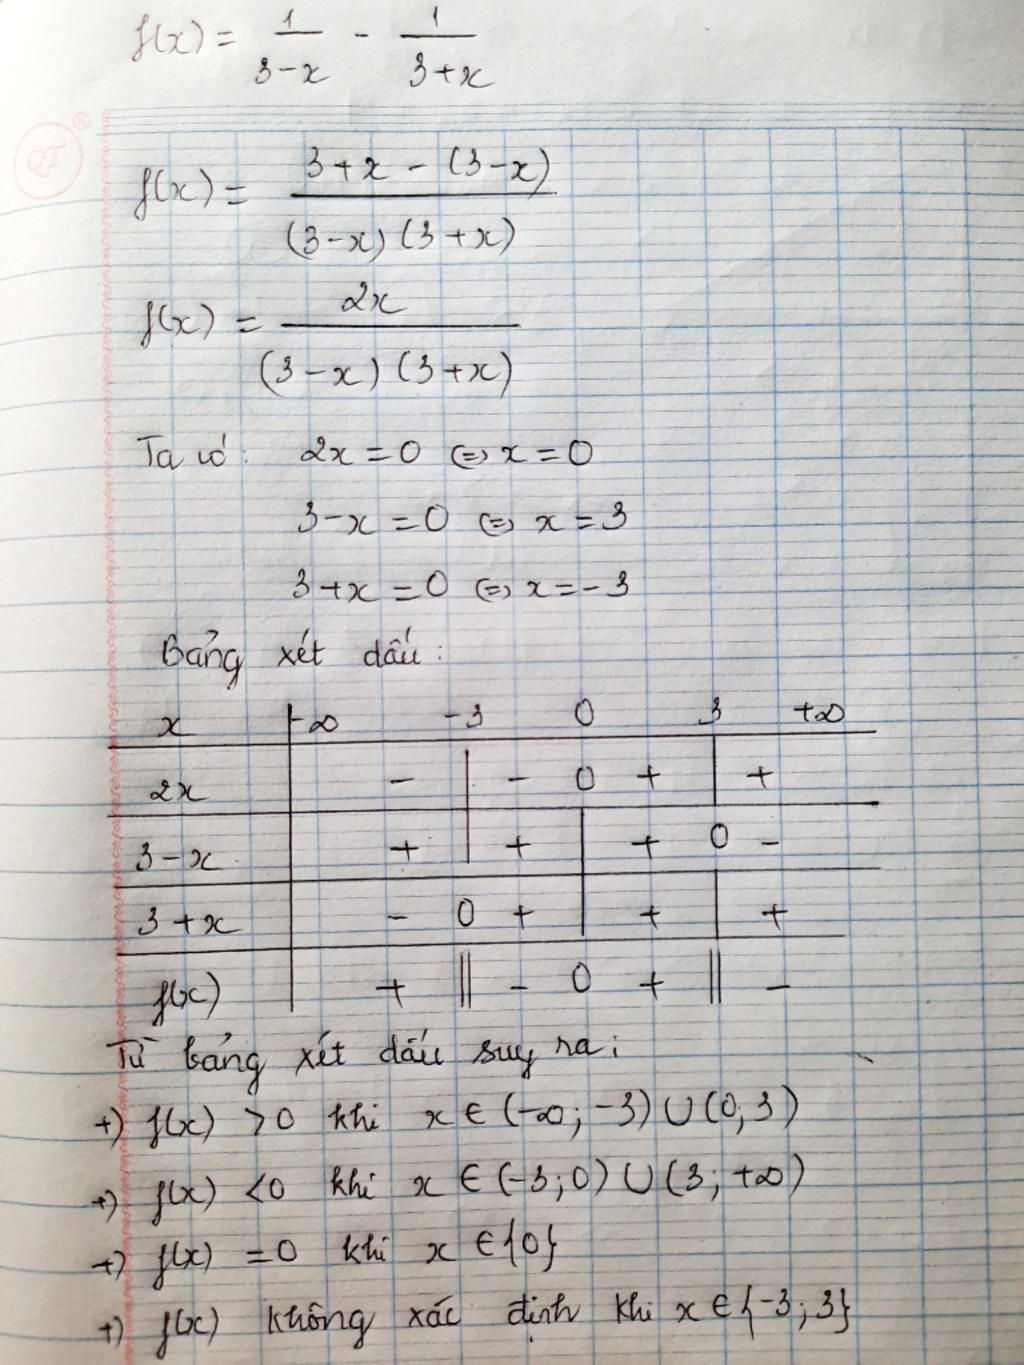 f(x) = 1/(3-x) - 1/(3+x)
QT ®
f(x) = (3+x-(3-x))/((3-x)(3+x))
f(x) = 2x/((3-x)(3+x))
Ta có: 2x = 0 <=> x = 0
3-x = 0 <=> x = 3
3+x = 0 <=> x = -3
Bảng xét dấu:
x | -∞ -3 0 3 +∞
2x | - | - 0 + | +
3-x | + | + | + 0 -
3+x | - 0 + | + | +
f(x) | + || - 0 + || -
Từ bảng xét dấu suy ra:
+) f(x) >0 khi x ∈ (-∞; -3) ∪ (0; 3)
+) f(x) <0 khi x ∈ (-3; 0) ∪ (3; +∞)
+) f(x) =0 khi x ∈ {0}
+) f(x) không xác định khi x ∈ {-3; 3}